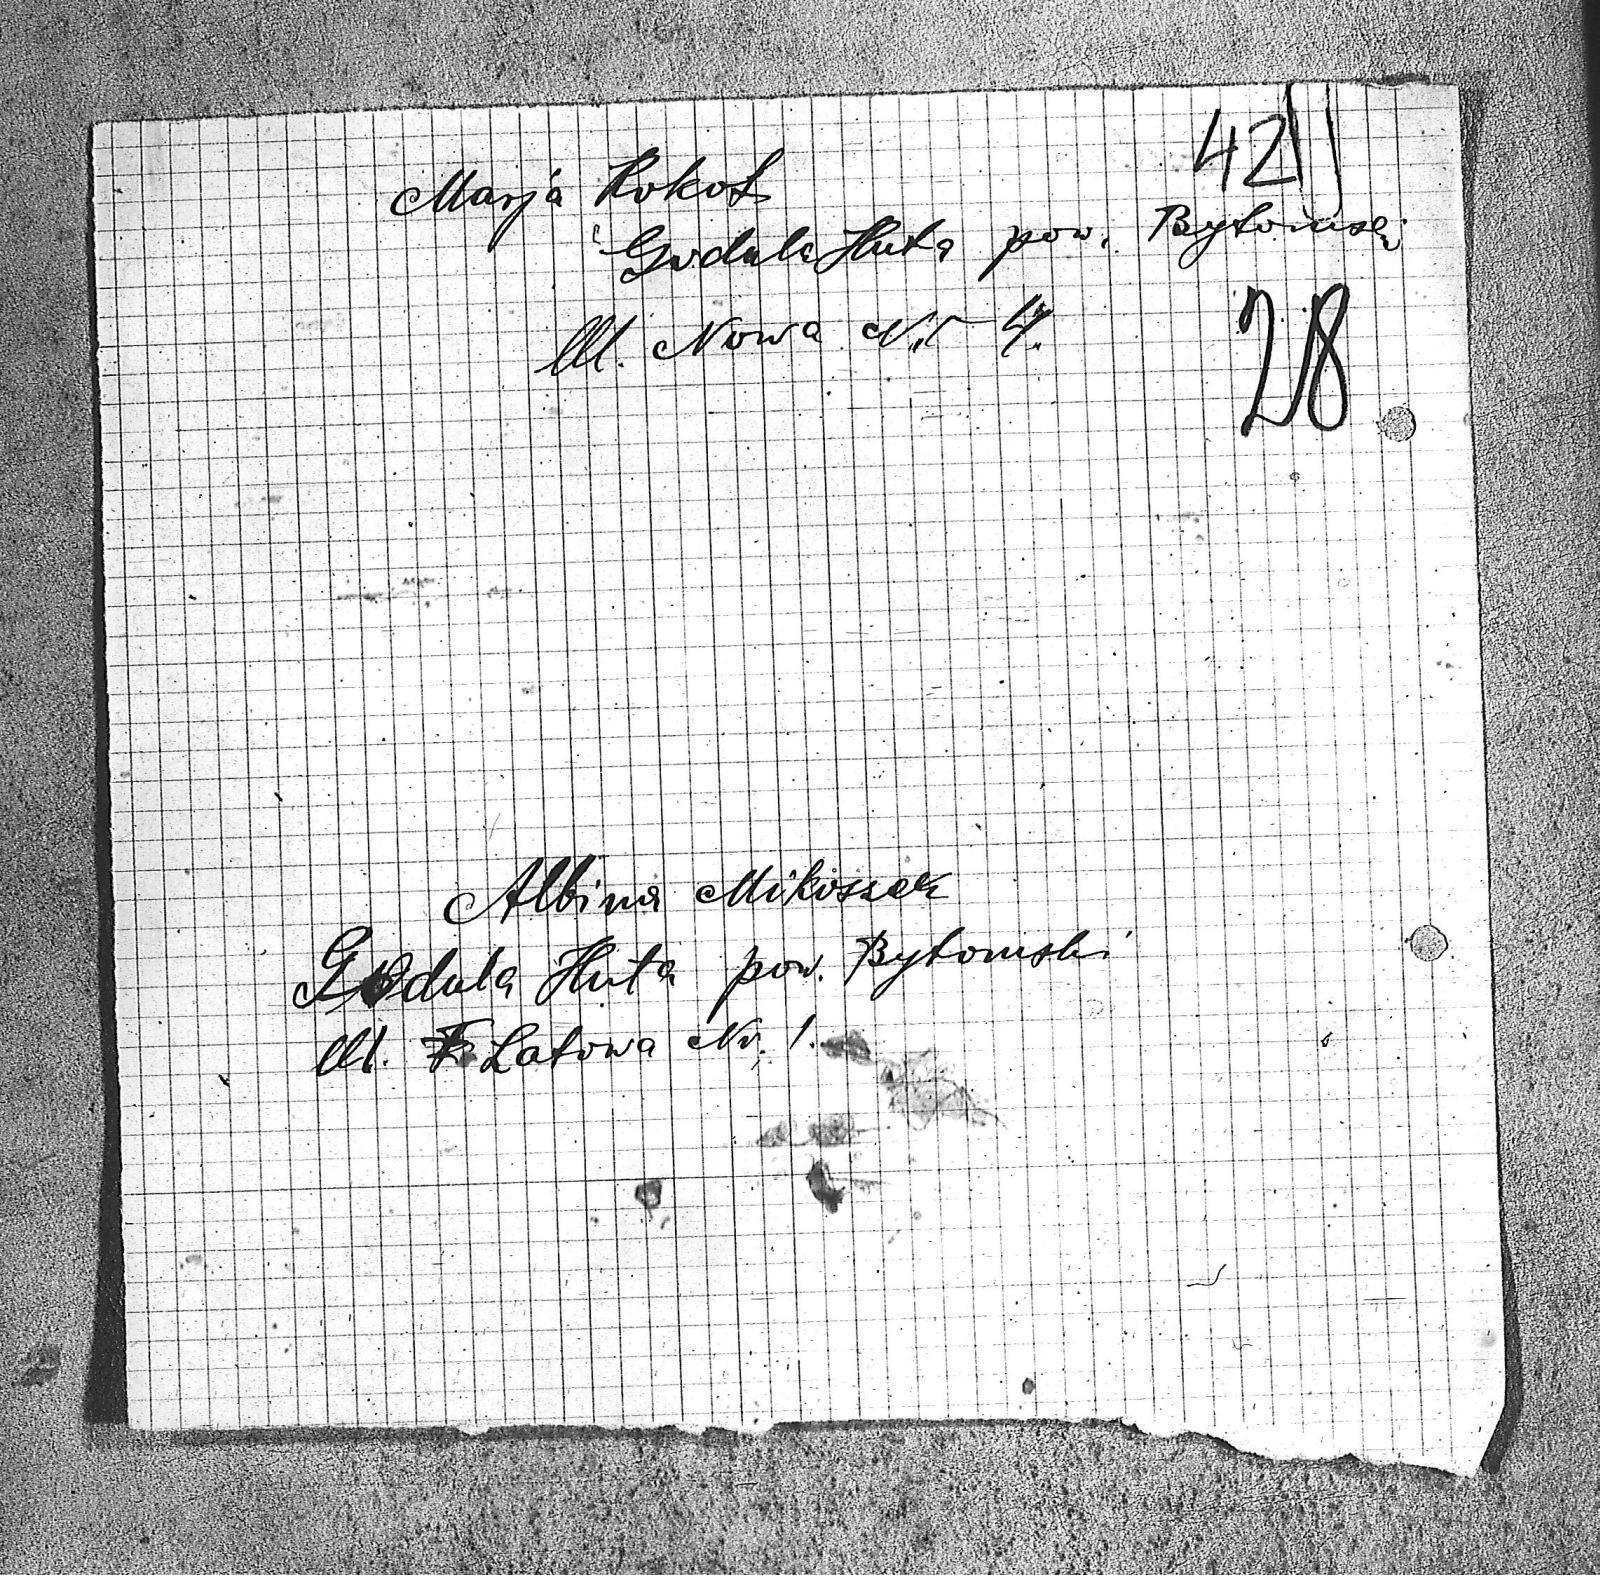 42
Marja Kokot
Godula Huta pow. Bytomski
Ul. Nowa Nr 4.
28
Albina Mikossek
Godula Huta pow. Bytomski
Ul. Latowa Nr. 1.